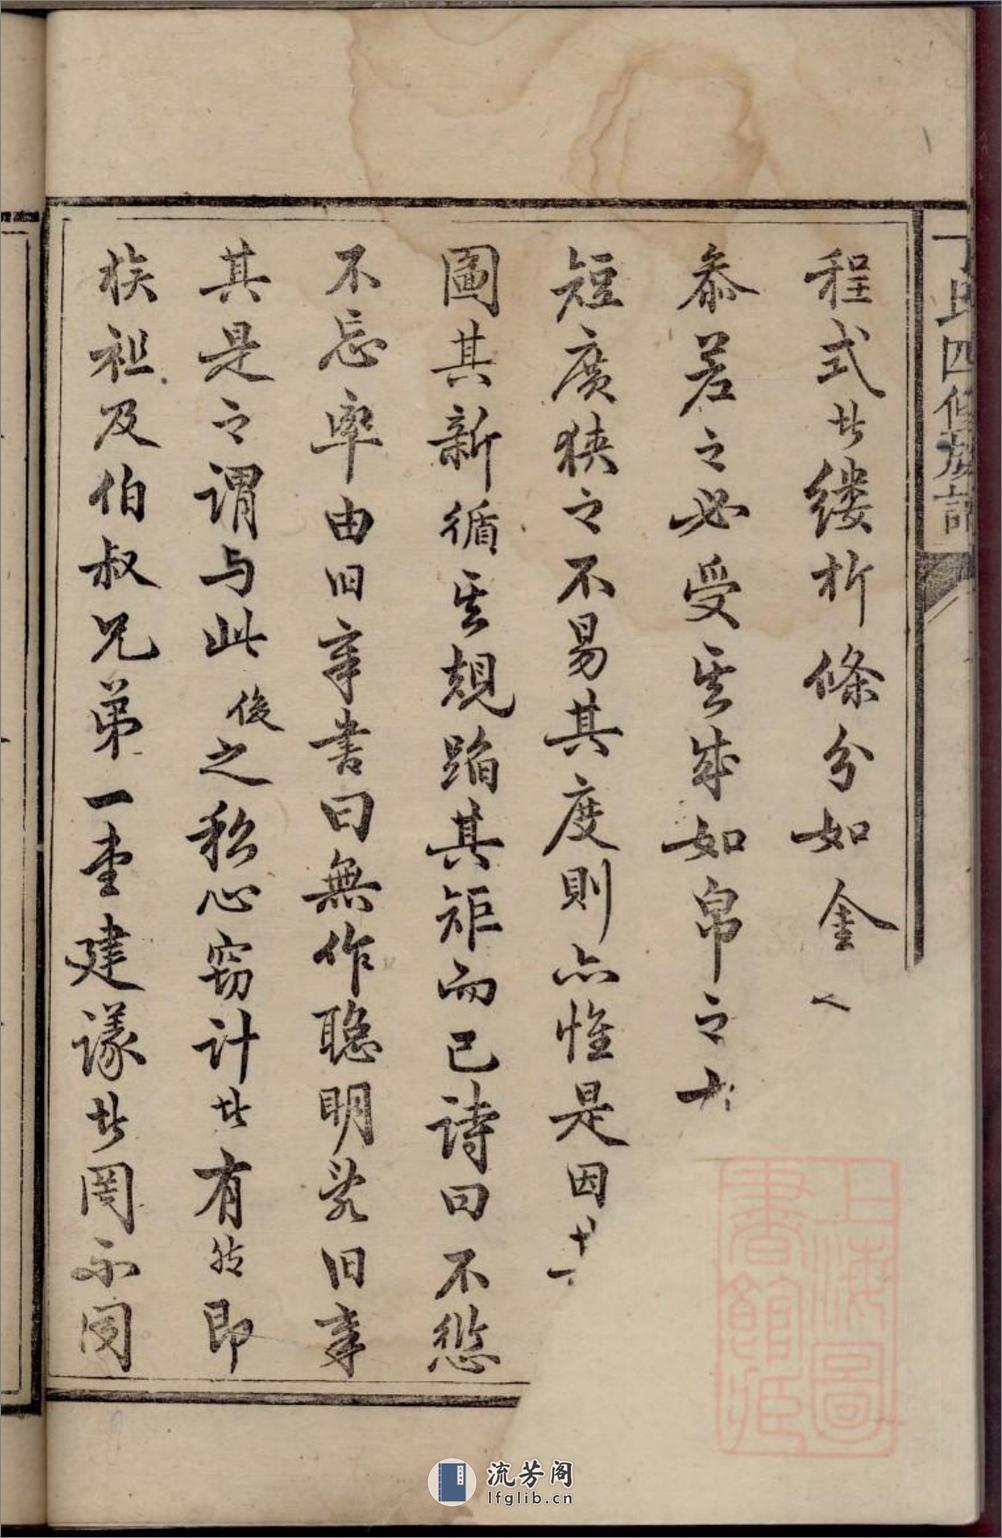 丁氏四修族譜
程式其縷析條分如金
叅若之必受其裁如帛之
短廣狹之不易其度則亦惟是因
圖其新循其規蹈其矩而已詩曰不愆
不忘率由旧章書曰無作聰明乱旧章
其是之謂与此後之私心窃計其有然即
族祖及伯叔兄弟一堂建議其罔不同
上海圖書館藏
流芳阁
lfglib.cn